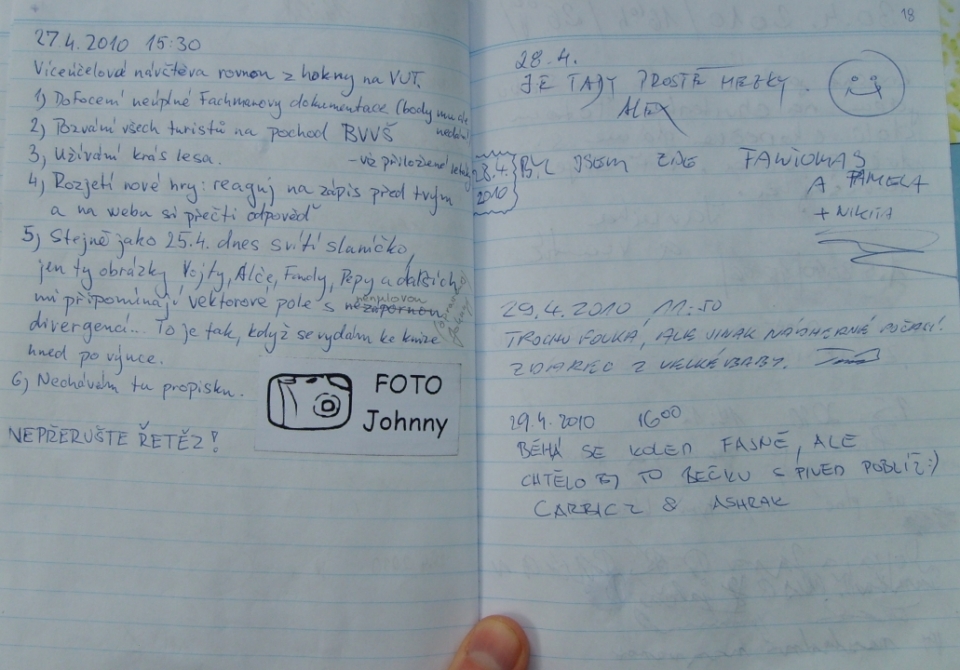 27.4.2010 15:30
Víceúčelová návštěva rovnou z hokny na VUT.
1) Dofocení neúplné Fachmanovy dokumentace (body mu ale nedám)
2) Pozvání všech turistů na pochod BVVŠ
– viz přiložené letáky
3) Užívání krás lesa.
4) Rozjetí nové hry: reaguj na zápis před tvým
a na webu si přečti odpověď
5) Stejně jako 25.4. dnes svítí slaníčko,
jen ty obrázky Vojty, Alče, Fondy, Pepy a dalších
mi připomínají vektorové pole s nenulovou
divergencí... To je tak, když se vydám ke knize
hned po výuce.
6) Nechávám tu propisku.
FOTO
Johnny
NEPŘERUŠTE ŘETĚZ!
18
28.4.
JE TADY PROSTĚ HEZKY.
ALEX
28.4.
2010
BYL JSEM ZDE FANTOMAS
A PAMELA
+ NIKITA
29.4.2010 11:50
TROCHU FOUKÁ, ALE JINAK NÁDHERNÉ POČASÍ.
ZDAREC Z VELKÉ BABY.
29.4.2010 16:00
BĚHÁ SE KOLEM FAJNĚ, ALE
CHTĚLO BY TO BEČKU S PIVEM POBLÍŽ:)
CARBICZ & ASHRAK